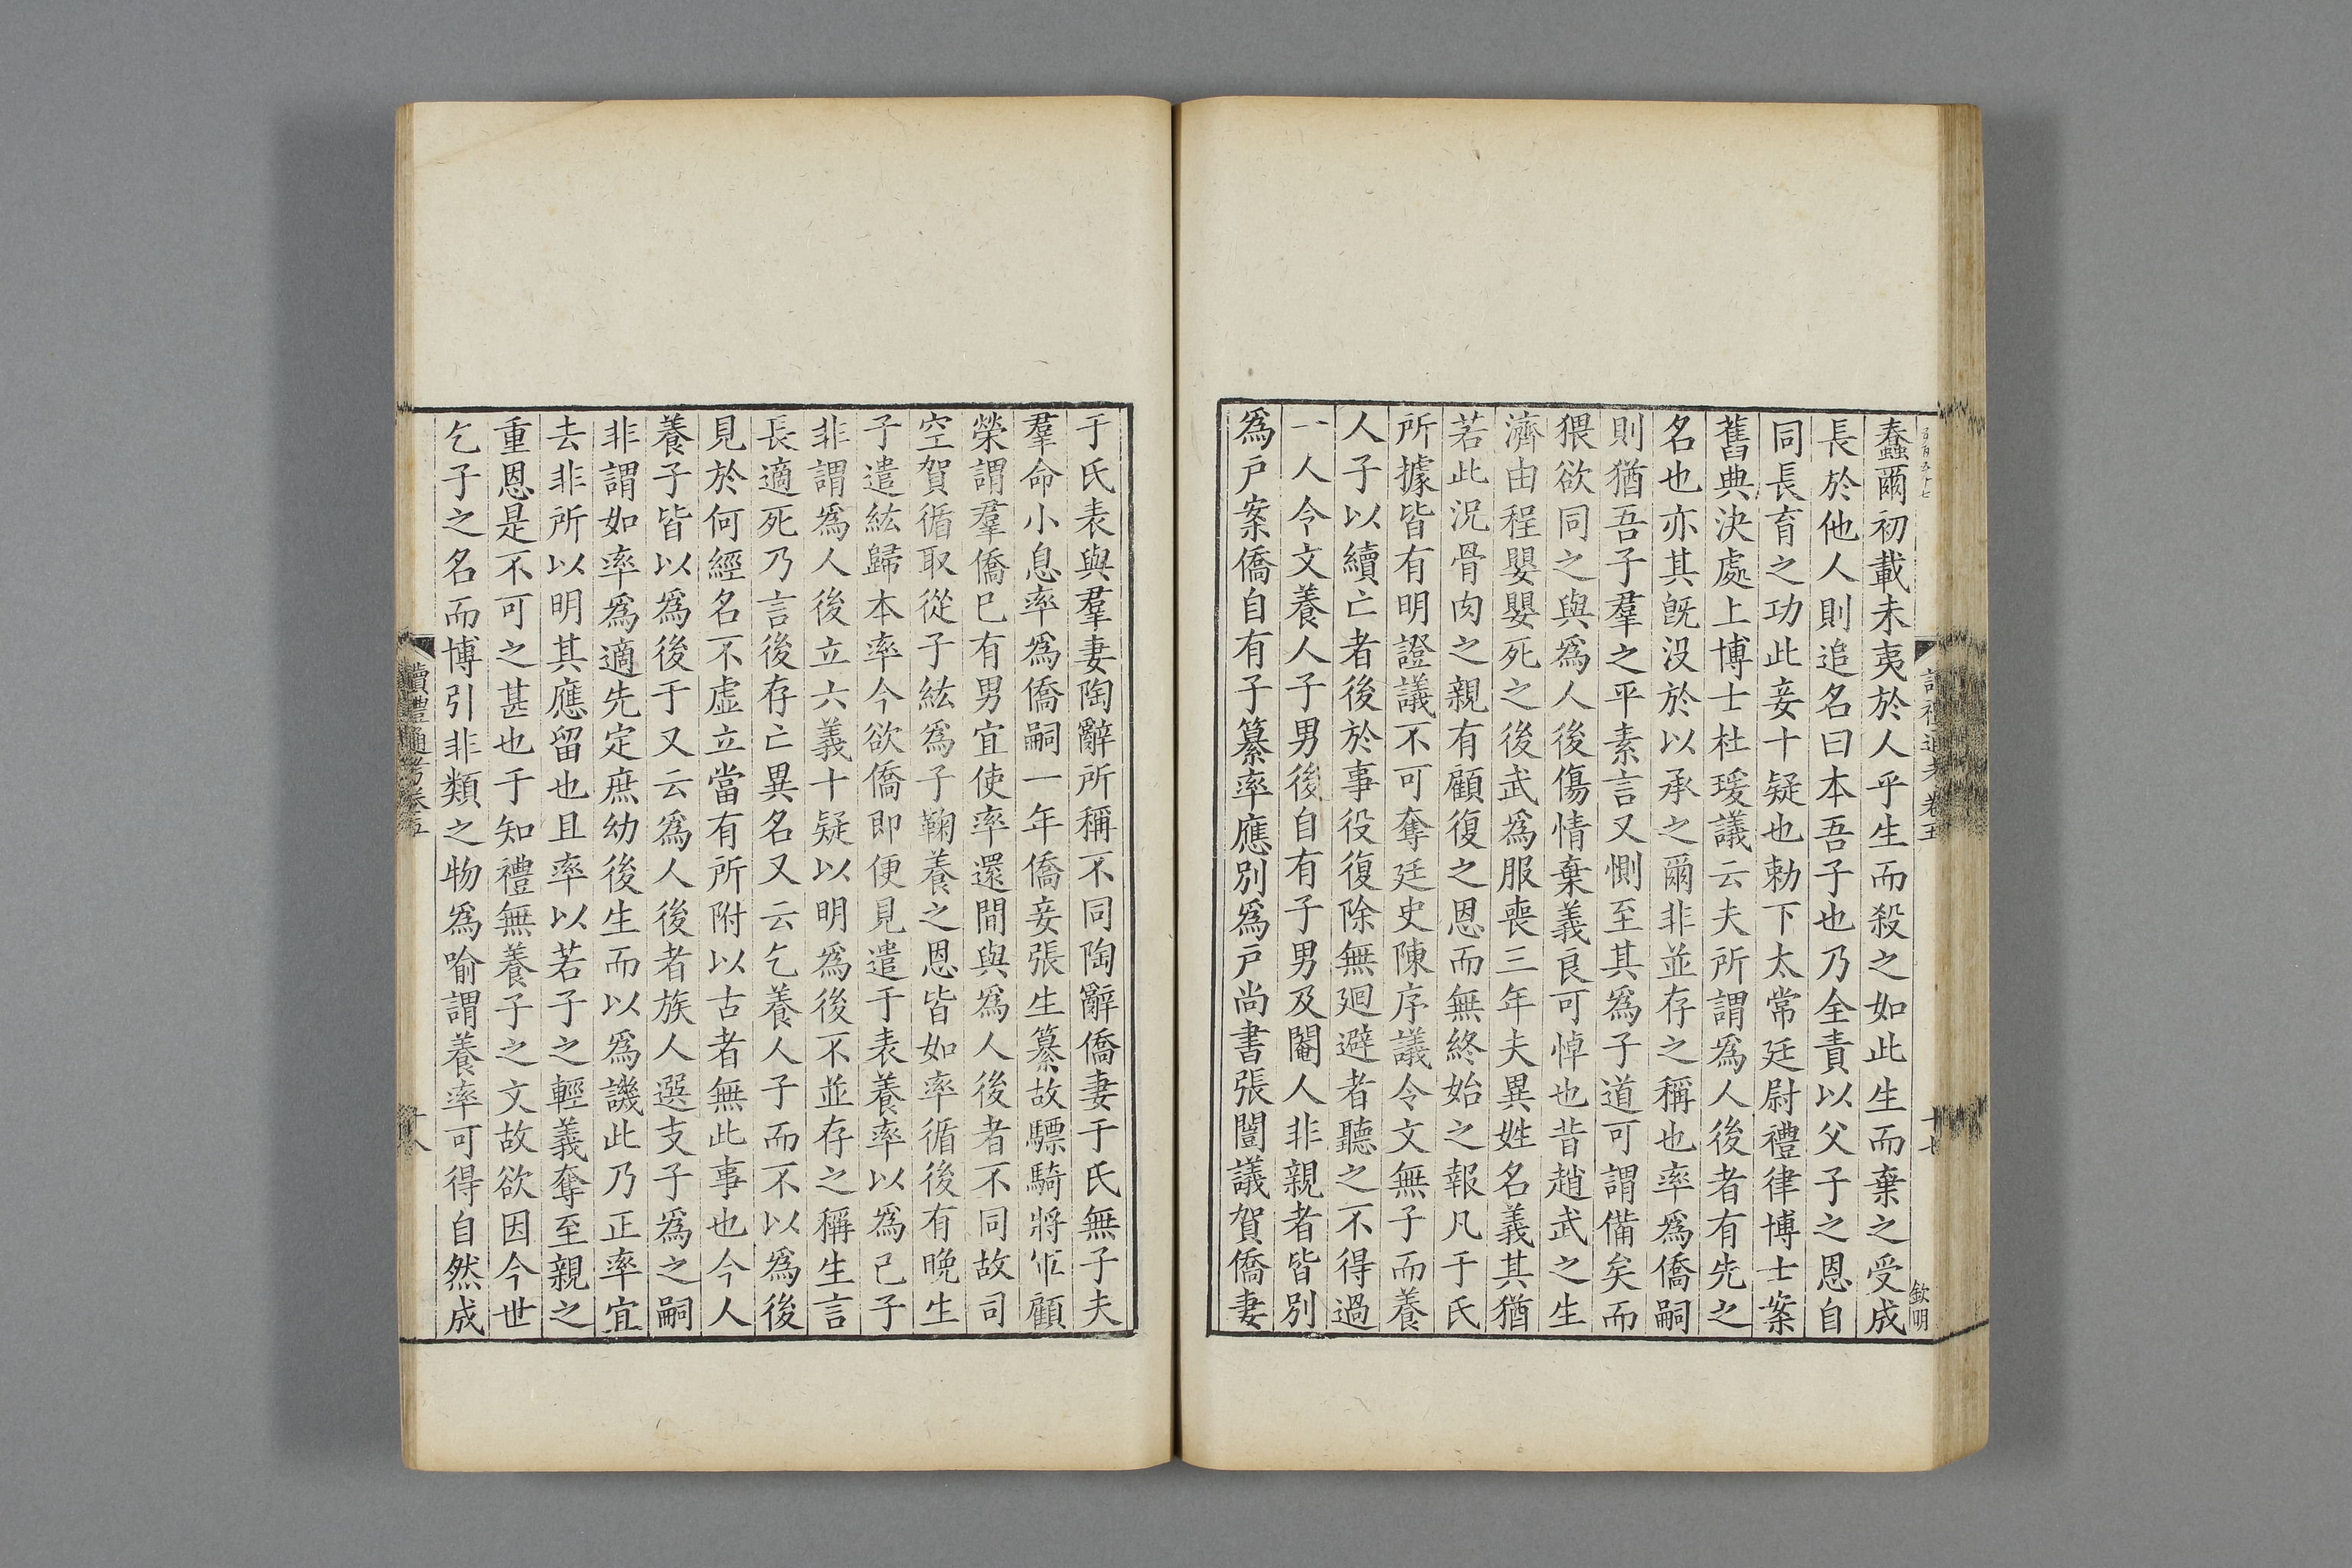 蠢爾初載未夷於人乎生而殺之如此生而棄之受成
長於他人則追名曰本吾子也乃全責以父子之恩自
同長育之功此妾十疑也勅下太常廷尉禮律博士案
舊典決處上博士杜瑗議云夫所謂爲人後者有先之
名也亦其旣沒於以承之爾非並存之稱也率爲僑嗣
則猶吾子羣之平素言又惻至其爲子道可謂備矣而
猥欲同之與爲人後傷情棄義良可悼也昔趙武之生
濟由程嬰嬰死之後武爲服喪三年夫異姓名義其猶
若此況骨肉之親有顧復之恩而無終始之報凡于氏
所據皆有明證議不可奪廷史陳序議令文無子而養
人子以續亡者後於事役復除無廻避者聽之不得過
一人令文養人子男後自有子男及閹人非親者皆別
爲戸案僑自有子纂率應別爲戸尚書張闓議賀僑妻
于氏表與羣妻陶辭所稱不同陶辭僑妻于氏無子夫
羣命小息率爲僑嗣一年僑妾張生纂故驃騎將軍顧
榮謂羣僑已有男宜使率還閒與爲人後者不同故司
空賀循取從子紘爲子鞠養之恩皆如率循後有晚生
子遣紘歸本率今欲僑即便見遣于表養率以爲己子
非謂爲人後立六義十疑以明爲後不並存之稱生言
長適死乃言後存亡異名又云乞養人子而不以爲後
見於何經名不虛立當有所附以古者無此事也今人
養子皆以爲後于又云爲人後者族人選支子爲之嗣
非謂如率爲適先定庶幼後生而以爲譏此乃正率宜
去非所以明其應留也且率以若子之輕義奪至親之
重恩是不可之甚也于知禮無養子之文故欲因今世
乞子之名而博引非類之物爲喻謂養率可得自然成
讀禮通考卷五
十八